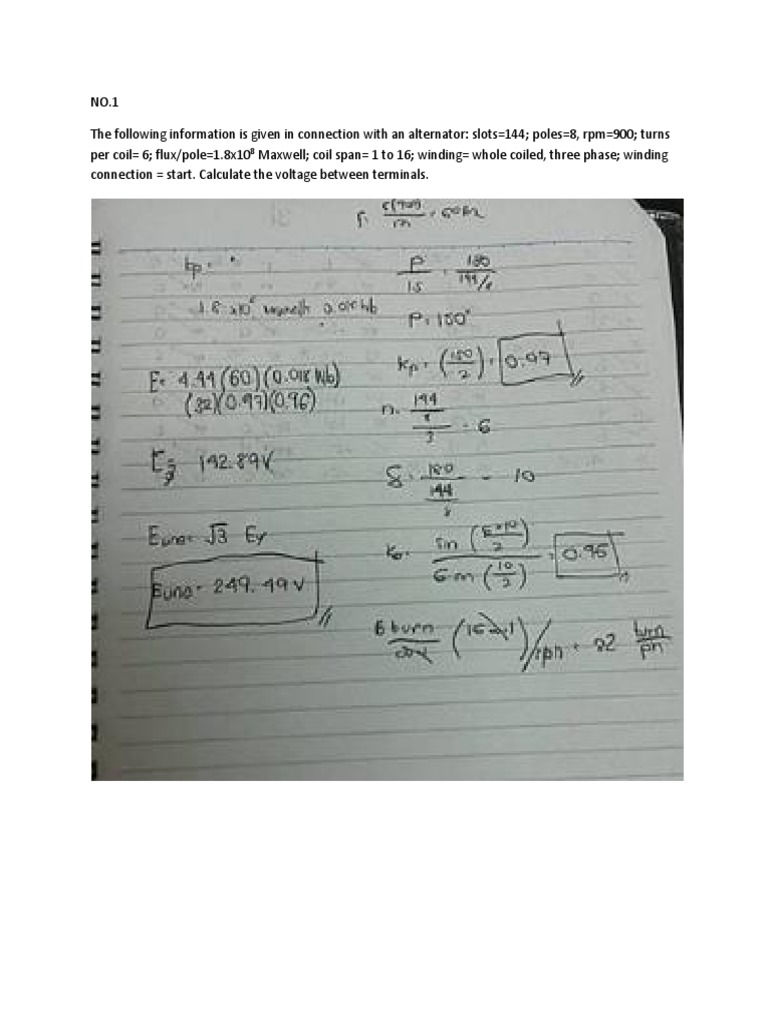 NO.1
The following information is given in connection with an alternator: slots=144; poles=8, rpm=900; turns
per coil= 6; flux/pole=1.8x10⁸ Maxwell; coil span= 1 to 16; winding= whole coiled, three phase; winding
connection = start. Calculate the voltage between terminals.
kp =
P/15 = 180/(144/8)
1.8 x10⁶ 0.018 Wb
P = 150°
kp = (150/2) = 0.97
E = 4.44(60)(0.018 Wb)
(32)(0.97)(0.96)
n = (144/8)/3 = 6
E = 142.89V
180/(144/8) = 10
E = √3 E
sin (6x10/2) / 6 (10/2) = 0.96
E = 249.49 V
6 turn